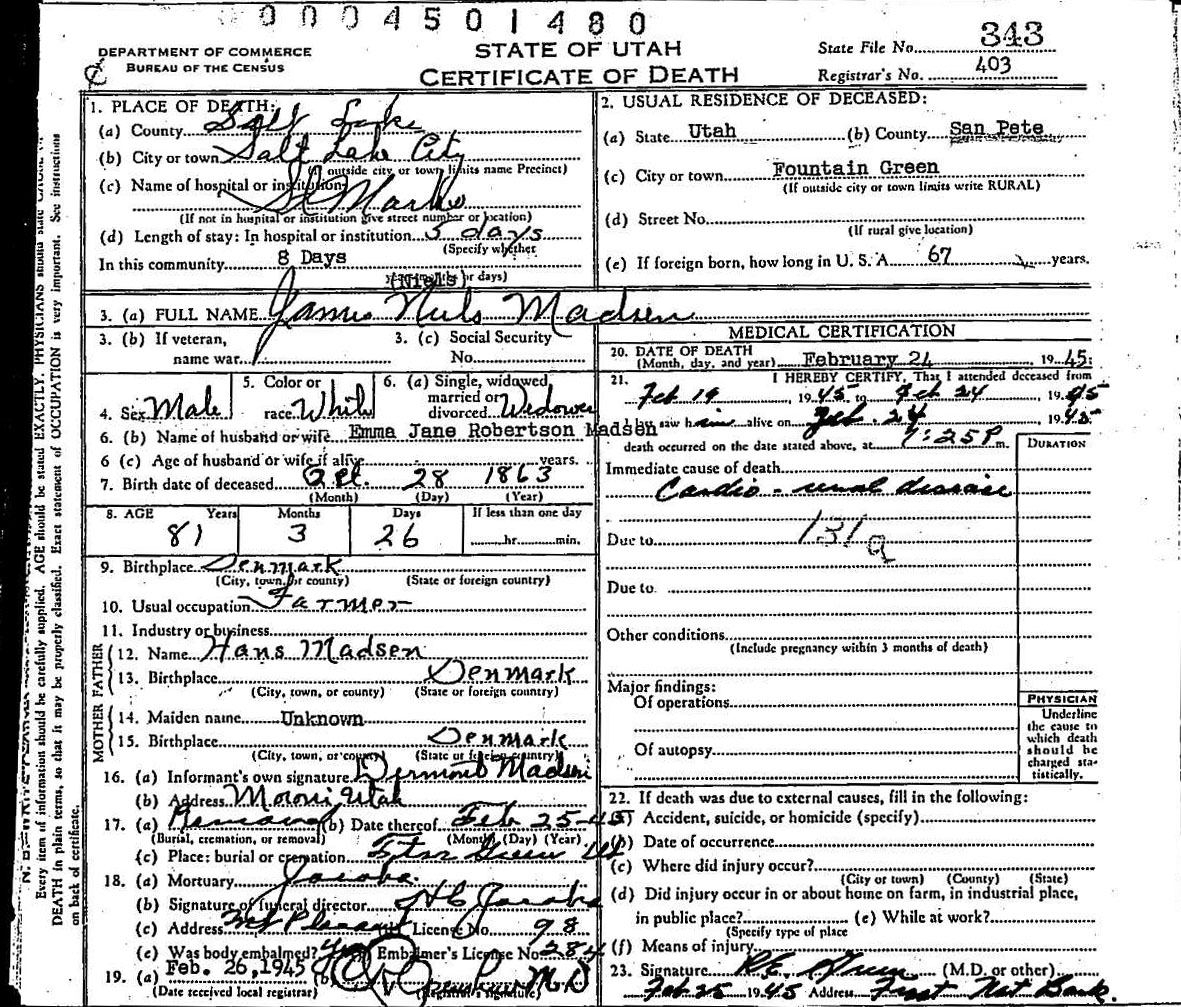 0004501480
DEPARTMENT OF COMMERCE
BUREAU OF THE CENSUS
STATE OF UTAH
CERTIFICATE OF DEATH
State File No. 343
Registrar's No. 403
1. PLACE OF DEATH:
(a) County Salt Lake
(b) City or town Salt Lake City
(If outside city or town limits name Precinct)
(c) Name of hospital or institution
St Marks
(If not in hospital or institution give street number or location)
(d) Length of stay: In hospital or institution 5 days
(Specify whether
In this community 8 Days
years, months or days)
2. USUAL RESIDENCE OF DECEASED:
(a) State Utah (b) County San Pete
(c) City or town Fountain Green
(If outside city or town limits write RURAL)
(d) Street No.
(If rural give location)
(e) If foreign born, how long in U. S. A. 67 years.
(Niels)
3. (a) FULL NAME James Niels Madsen
3. (b) If veteran, name war
3. (c) Social Security No.
4. Sex Male
5. Color or race White
6. (a) Single, widowed married or divorced Widower
6. (b) Name of husband or wife Emma Jane Robertson Madsen
6 (c) Age of husband or wife if alive years.
7. Birth date of deceased Oct. 28 1863
(Month) (Day) (Year)
8. AGE Years Months Days If less than one day
81 3 26 hr. min.
9. Birthplace Denmark
(City, town, or county) (State or foreign country)
10. Usual occupation Farmer
11. Industry or business
FATHER
12. Name Hans Madsen
13. Birthplace Denmark
(City, town, or county) (State or foreign country)
MOTHER
14. Maiden name Unknown
15. Birthplace Denmark
(City, town, or county) (State or foreign country)
16. (a) Informant's own signature Dermont Madsen
(b) Address Moroni Utah
17. (a) Removal (b) Date thereof Feb 25-45
(Burial, cremation, or removal) (Month) (Day) (Year)
(c) Place: burial or cremation Ftn Green Ut
18. (a) Mortuary Jacobs
(b) Signature of funeral director H C Jacobs
(c) Address Mt Pleasant License No. 98
(e) Was body embalmed? Yes Embalmer's License No. 284
19. (a) Feb. 26, 1945 M.D
(Date received local registrar) (Registrar's signature)
MEDICAL CERTIFICATION
20. DATE OF DEATH
(Month, day, and year) February 24 1945
21. I HEREBY CERTIFY, That I attended deceased from
Feb 19 1945 to Feb 24 1945
I last saw him alive on Feb. 24 1945
death occurred on the date stated above, at 7:25P m.
DURATION
Immediate cause of death
Cardio-renal disease
131a
Due to
Due to
Other conditions
(Include pregnancy within 3 months of death)
Major findings:
Of operations
Of autopsy
PHYSICIAN
Underline
the cause to
which death
should be
charged sta-
tistically.
22. If death was due to external causes, fill in the following:
(a) Accident, suicide, or homicide (specify)
(b) Date of occurrence
(c) Where did injury occur?
(City or town) (County) (State)
(d) Did injury occur in or about home on farm, in industrial place,
in public place? (e) While at work?
(Specify type of place
(f) Means of injury
23. Signature (M.D. or other)
Feb 25 1945 Address First Nat Bank.
Every item of information should be carefully supplied. AGE should be stated EXACTLY. PHYSICIANS should state
DEATH in plain terms, so that it may be properly classified. Exact statement of OCCUPATION is very important. See instructions
on back of certificate.